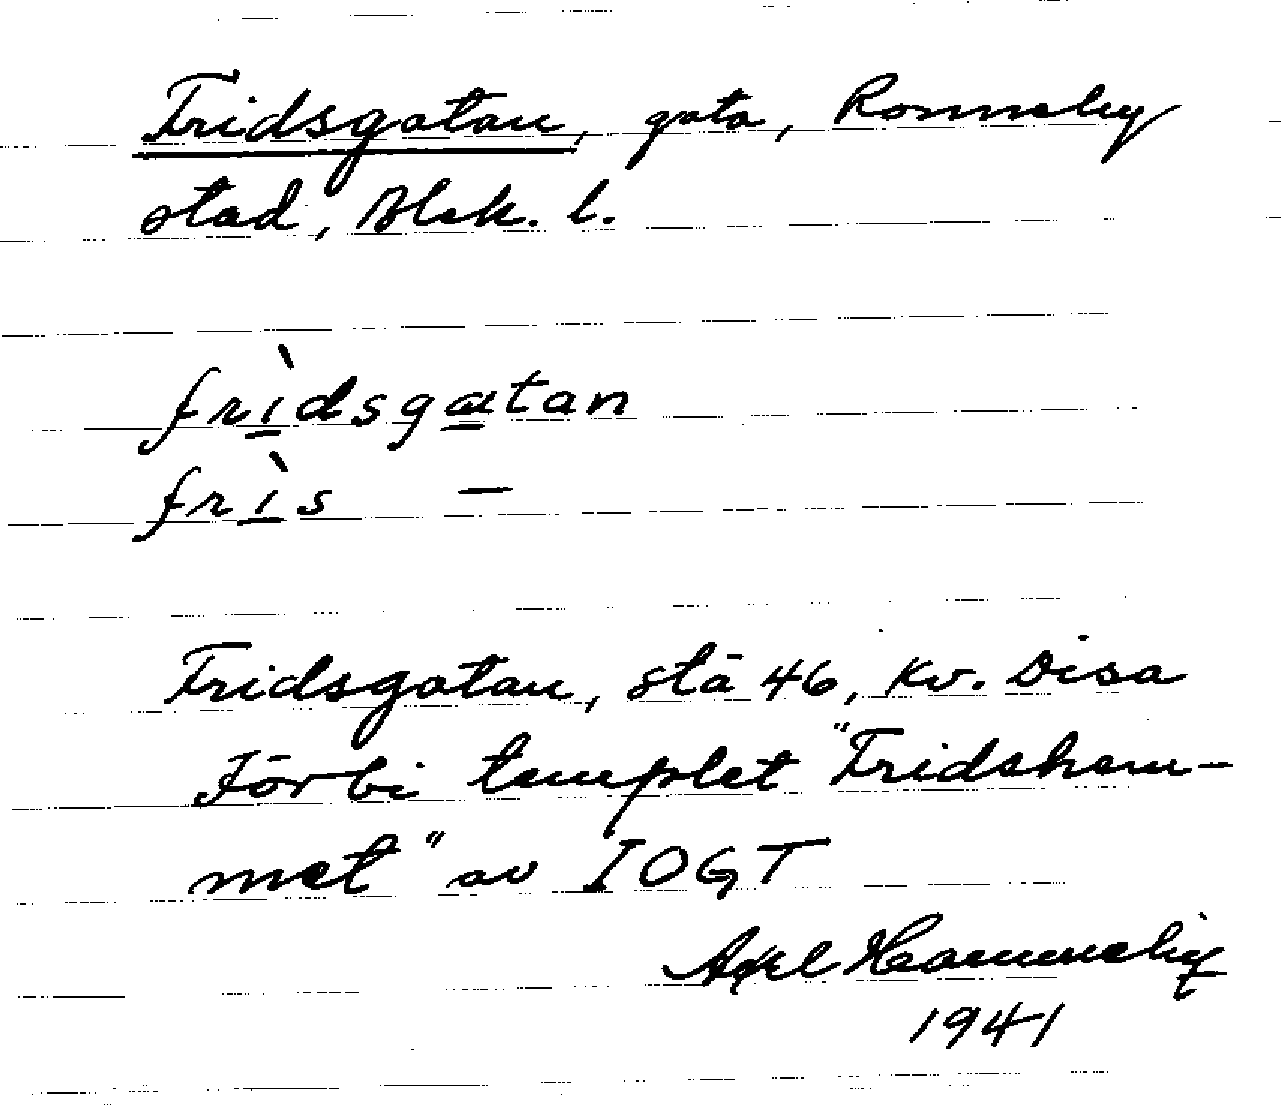 Fridsgatan, gata, Ronneby
stad, Blek. l.
frìdsgatan
frìs –
Fridsgatan, stä 46, kv. Disa
Förbi templet "Fridshem-
met" av IOGT
Axel Hammelig
1941